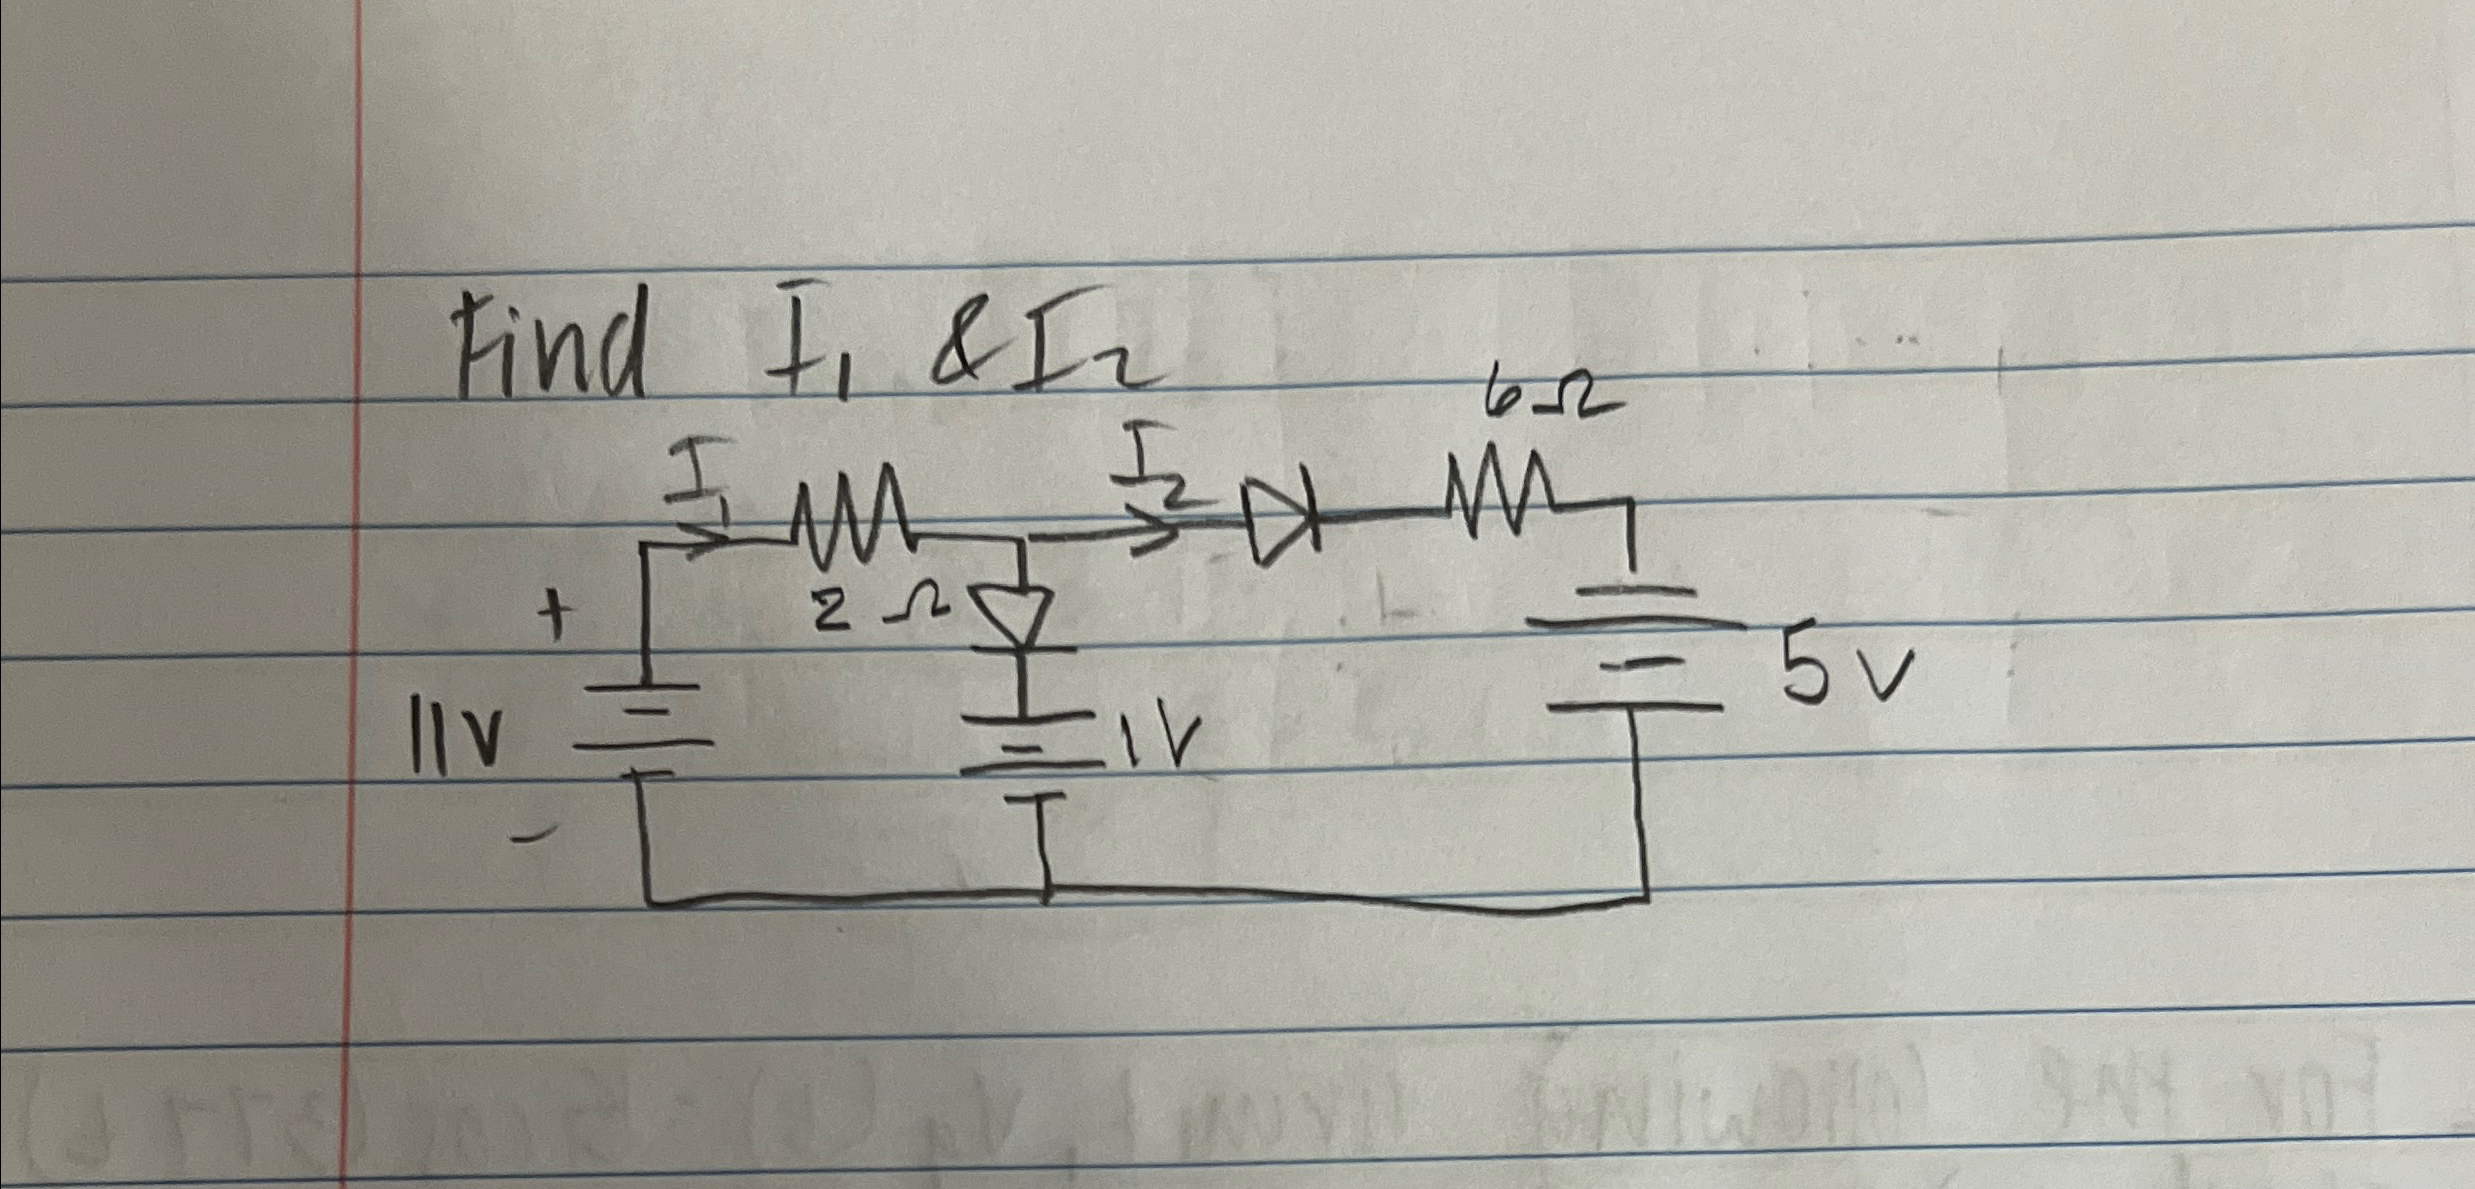 Find I₁ & I₂
6Ω
I₁
I₂
2Ω
+
11V
1V
5V
-